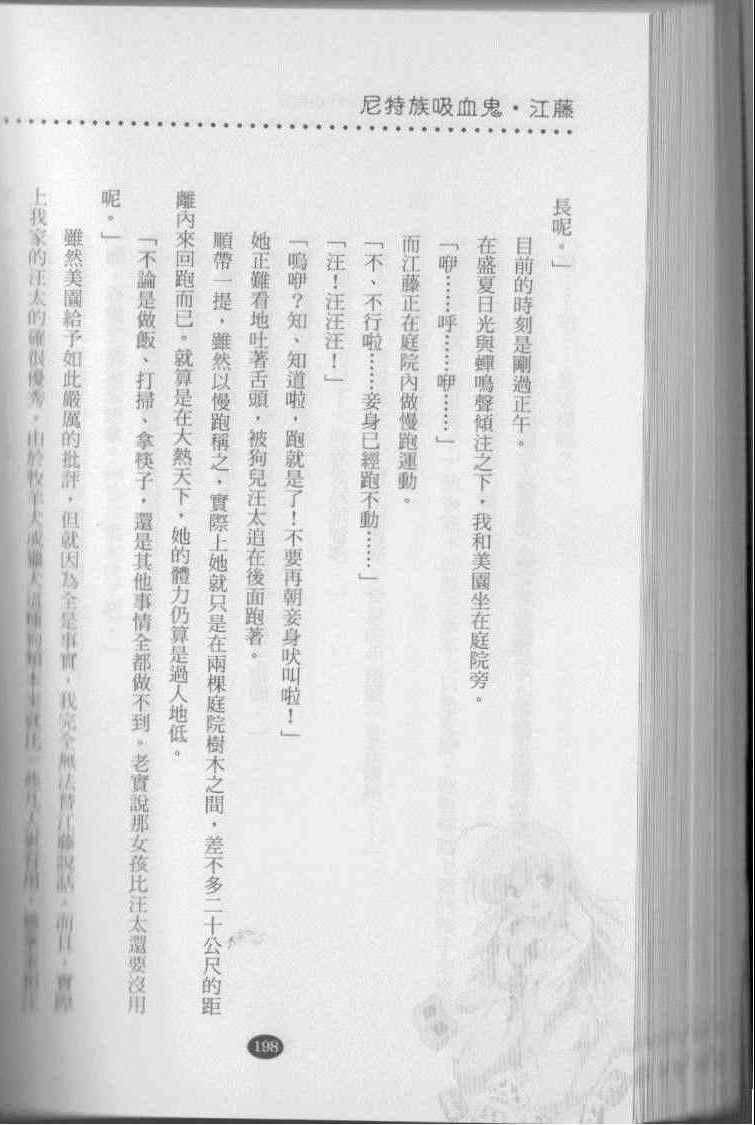 尼特族吸血鬼・江藤
長呢。」
目前的時刻是剛過正午。
在盛夏日光與蟬鳴聲傾注之下，我和美園坐在庭院旁。
「咿……呼……咿……」
而江藤正在庭院內做慢跑運動。
「不、不行啦……妾身已經跑不動……」
「汪！汪汪汪！」
「嗚咿？知、知道啦，跑就是了！不要再朝妾身吠叫啦！」
她正難看地吐著舌頭，被狗兒汪太追在後面跑著。
順帶一提，雖然以慢跑稱之，實際上她就只是在兩棵庭院樹木之間，差不多二十公尺的距
離內來回跑而已。就算是在大熱天下，她的體力仍算是過人地低。
「不論是做飯、打掃、拿筷子，還是其他事情全都做不到。老實說那女孩比汪太還要沒用
呢。」
雖然美園給予如此嚴厲的批評，但就因為全是事實，我完全無法替江藤說話。而且，實際
上我家的汪太的確很優秀。由於牧羊犬或獵犬這種狗類本來就比
198